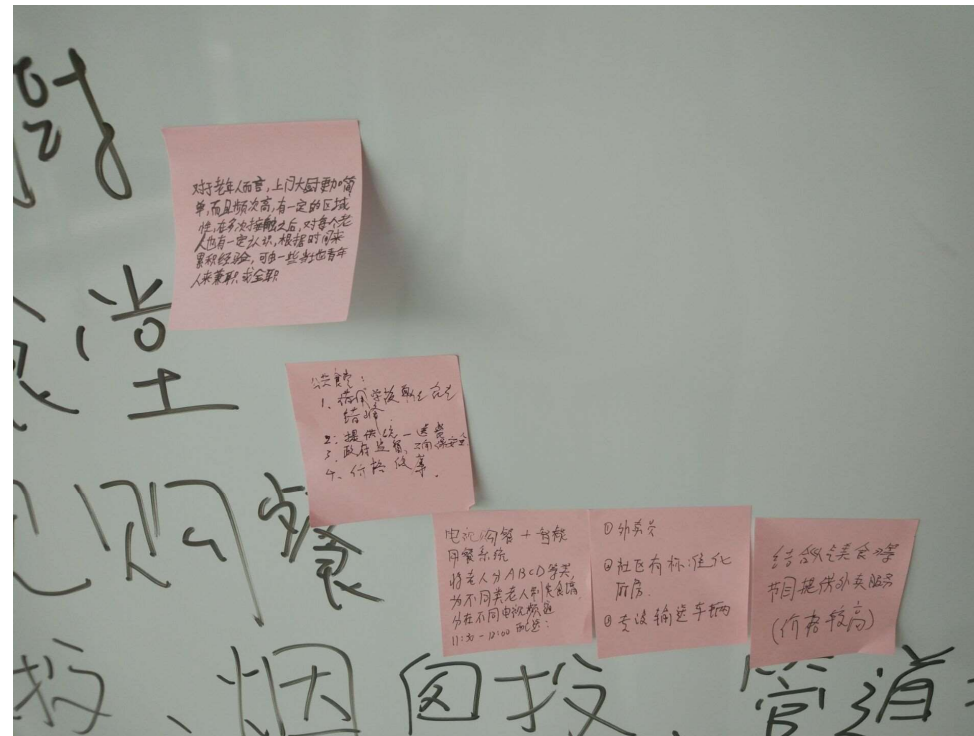 厨
对于老年人而言,上门大厨更加简
单,而且频次高,有一定的区域
性,在多次接触之后,对每个老
人也有一定认识,根据时间来
累积经验,可由一些社也青年
人来兼职或全职
食堂
公共食堂:
1、
结合
2:提供统一送餐
3、政府监督,确保安全
4、价格低等.
视购餐
电视购餐+音频
用餐系统
将老人分ABCD等类,
为不同类老人制定食谱,
分在不同电视频道
11:30-12:00配送:
①外卖员
②社区有标准化
厨房.
③专设输送车辆
结合做美食等
节目提供外卖服务
(价格较高)
投、烟囱投、管道